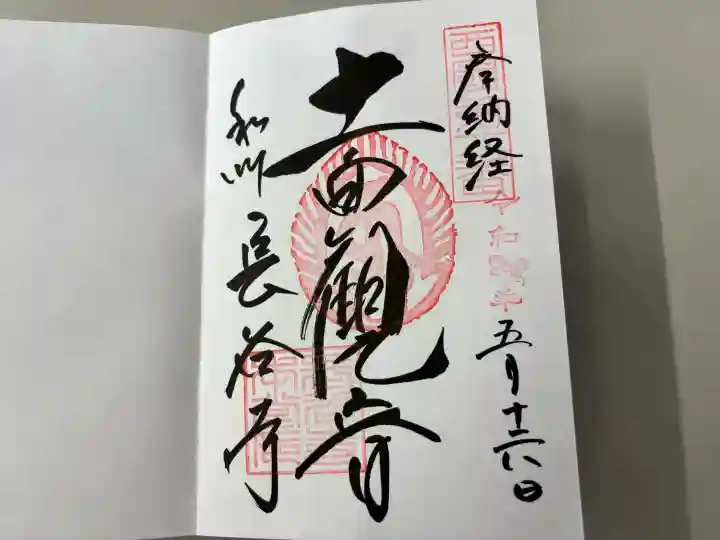 奉納経
令和 年五月十六日
十一面観音
和州 長谷寺